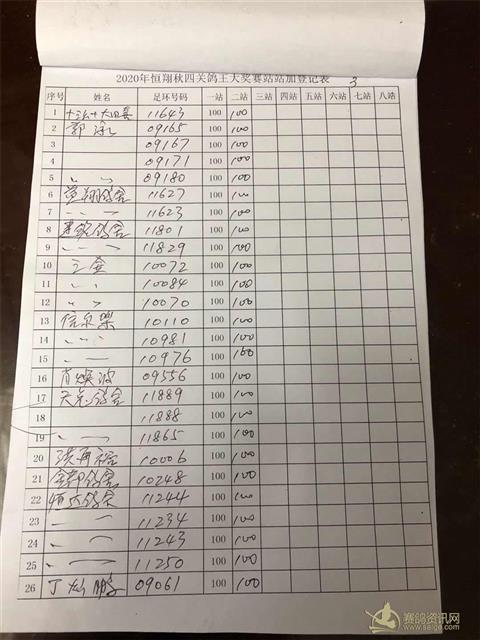 2020年恒翔秋四关鸽王大奖赛站站加登记表 3
序号 姓名 足环号码 一站 二站 三站 四站 五站 六站 七站 八站
1 11643 100 100
2 郭 09165 100 100
3 09167 100 100
4 09171 100 100
5 〃 〃 09180 100 100
6 翔鸽舍 11627 100 100
7 〃 〃 11623 100 100
8 鸽舍 11801 100 100
9 〃 〃 11829 100 100
10 10072 100 100
11 〃 〃 10084 100 100
12 〃 〃 10070 100 100
13 10110 100 100
14 〃 〃 10981 100 100
15 〃 10976 100 100
16 肖焕波 09556 100 100
17 鸽舍 11889 100 100
18 11888 100 100
19 〃 11865 100 100
20 10006 100 100
21 鸽舍 10248 100 100
22 恒 11244 100 100
23 〃 11234 100 100
24 〃 11243 100 100
25 〃 11250 100 100
26 丁 鹏 09061 100 100
赛鸽资讯网
www.saige.com